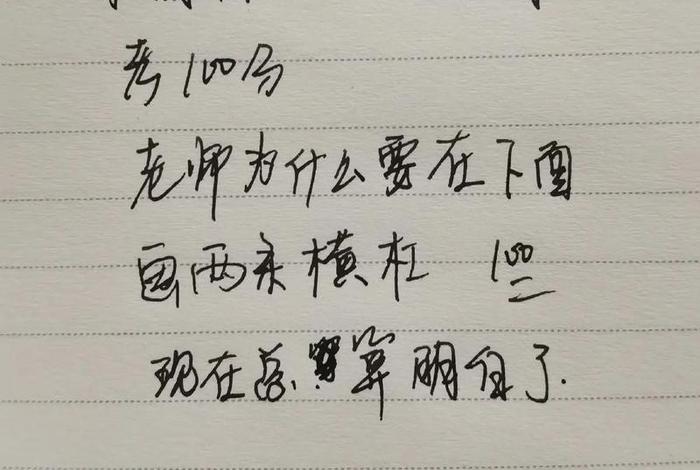 考100分
老师为什么要在下面
画两条横杠 100
现在总算明白了.